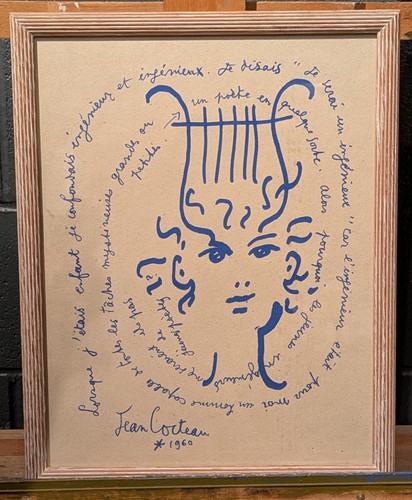 Lorsque j'étais enfant je confondais ingénieur et ingénieux. Je disais "Je serai un ingénieux" car l'ingénieur était pour moi un homme capable de toutes les tâches mystérieuses grandes ou
petites
un poète en quelque sorte. Alors pourquoi les jeunes ingénieurs ne pas
Jean Cocteau
* 1960